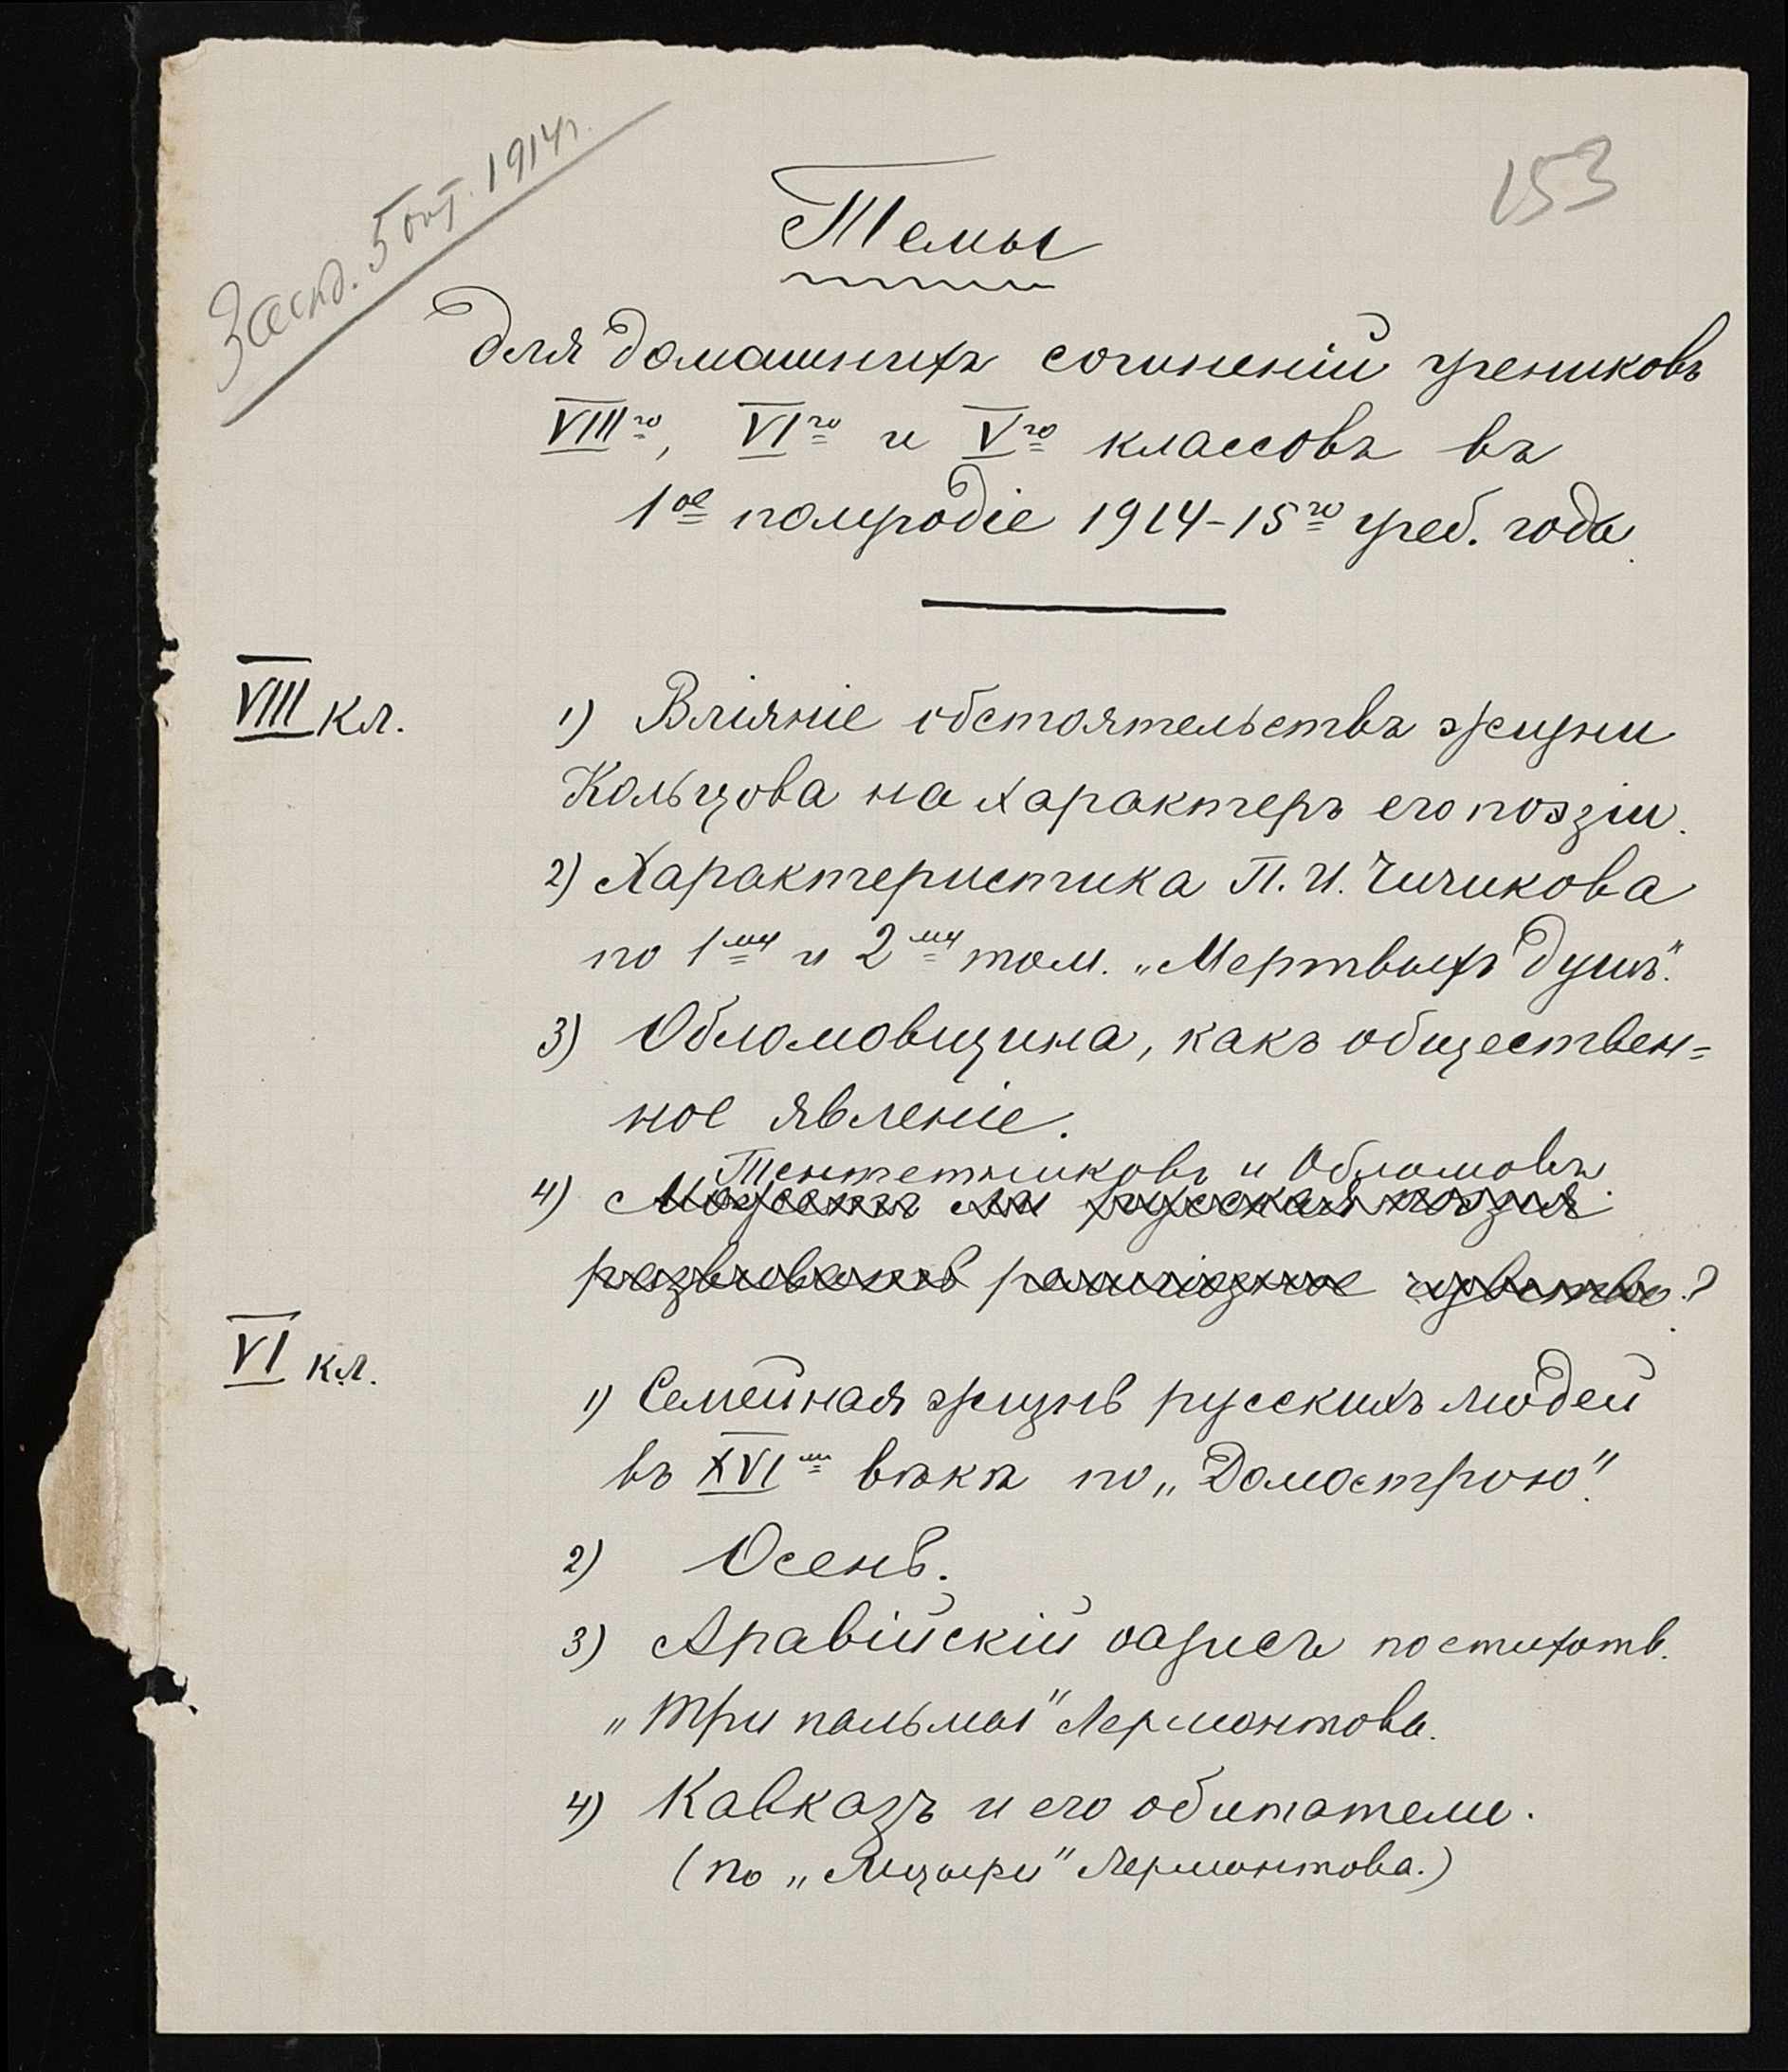 Засѣд. 5 окт. 1914 г.
153
Темы
для домашнихъ сочиненій учениковъ
VIIIго, VIго и Vго классовъ въ
1ое полугодіе 1914-15го учеб. года.
VIII кл.
1) Вліяніе обстоятельствъ жизни
Кольцова на характеръ его поэзіи.
2) Характеристика П. И. Чичикова
по 1му и 2му том. „Мертвыхъ душъ".
3) Обломовщина, какъ обществен=
ное явленіе.
Тентетниковъ и Обломовъ.
4) Можетъ ли русская поэзія
развивать религіозное чувство?
VI кл.
1) Семейная жизнь русскихъ людей
въ XVIм вѣкѣ по „Домострою".
2) Осень.
3) Аравійскій оазисъ по стихотв.
„Три пальмы" Лермонтова.
4) Кавказъ и его обитатели.
(по „Мцыри" Лермонтова.)